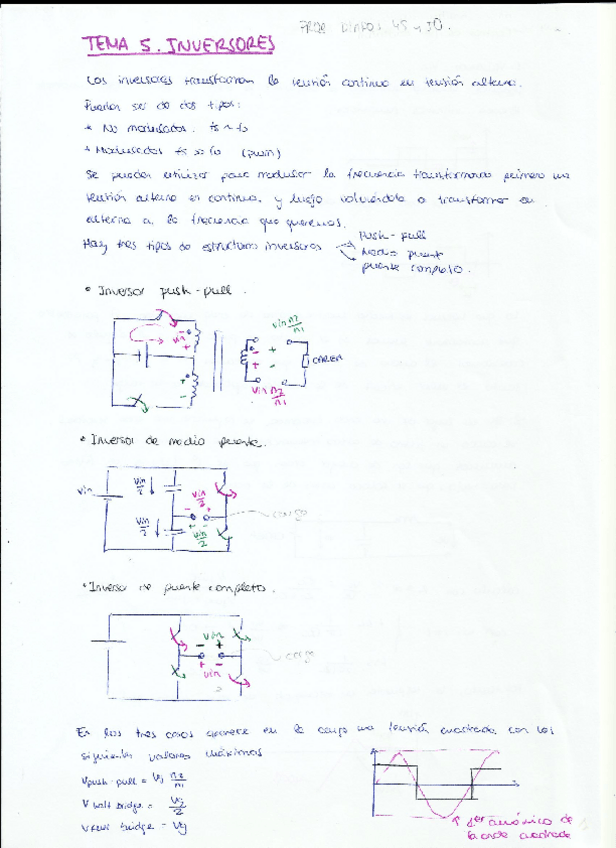 TEMA 5. INVERSORES
Los inversores transforman la tensión continua en tensión alterna.
Pueden ser de dos tipos:
* No modulados. fs ~ fo
* Modulados fs >> fo (pwm)
Se pueden utilizar para modular la frecuencia transformando primero una
tensión alterna en continua, y luego volviéndola a transformar en
alterna a la frecuencia que queremos.
Hay tres tipos de estructuras inversoras
Push-pull
Medio puente
puente completo.
• Inversor push-pull.
Vin
Vin n2/n1
CARGA
Vin n2/n1
• Inversor de medio puente.
Vin
Vin/2
Vin/2
Vin/2
Vin/2
carga
• Inversor de puente completo.
Vin
Vin
carga
En los tres casos aparece en la carga una tensión cuadrada con los
siguientes valores máximos
Vpush-pull = Vg n2/n1
V half bridge = Vg/2
V full bridge = Vg
1er armónico de
la onda cuadrada